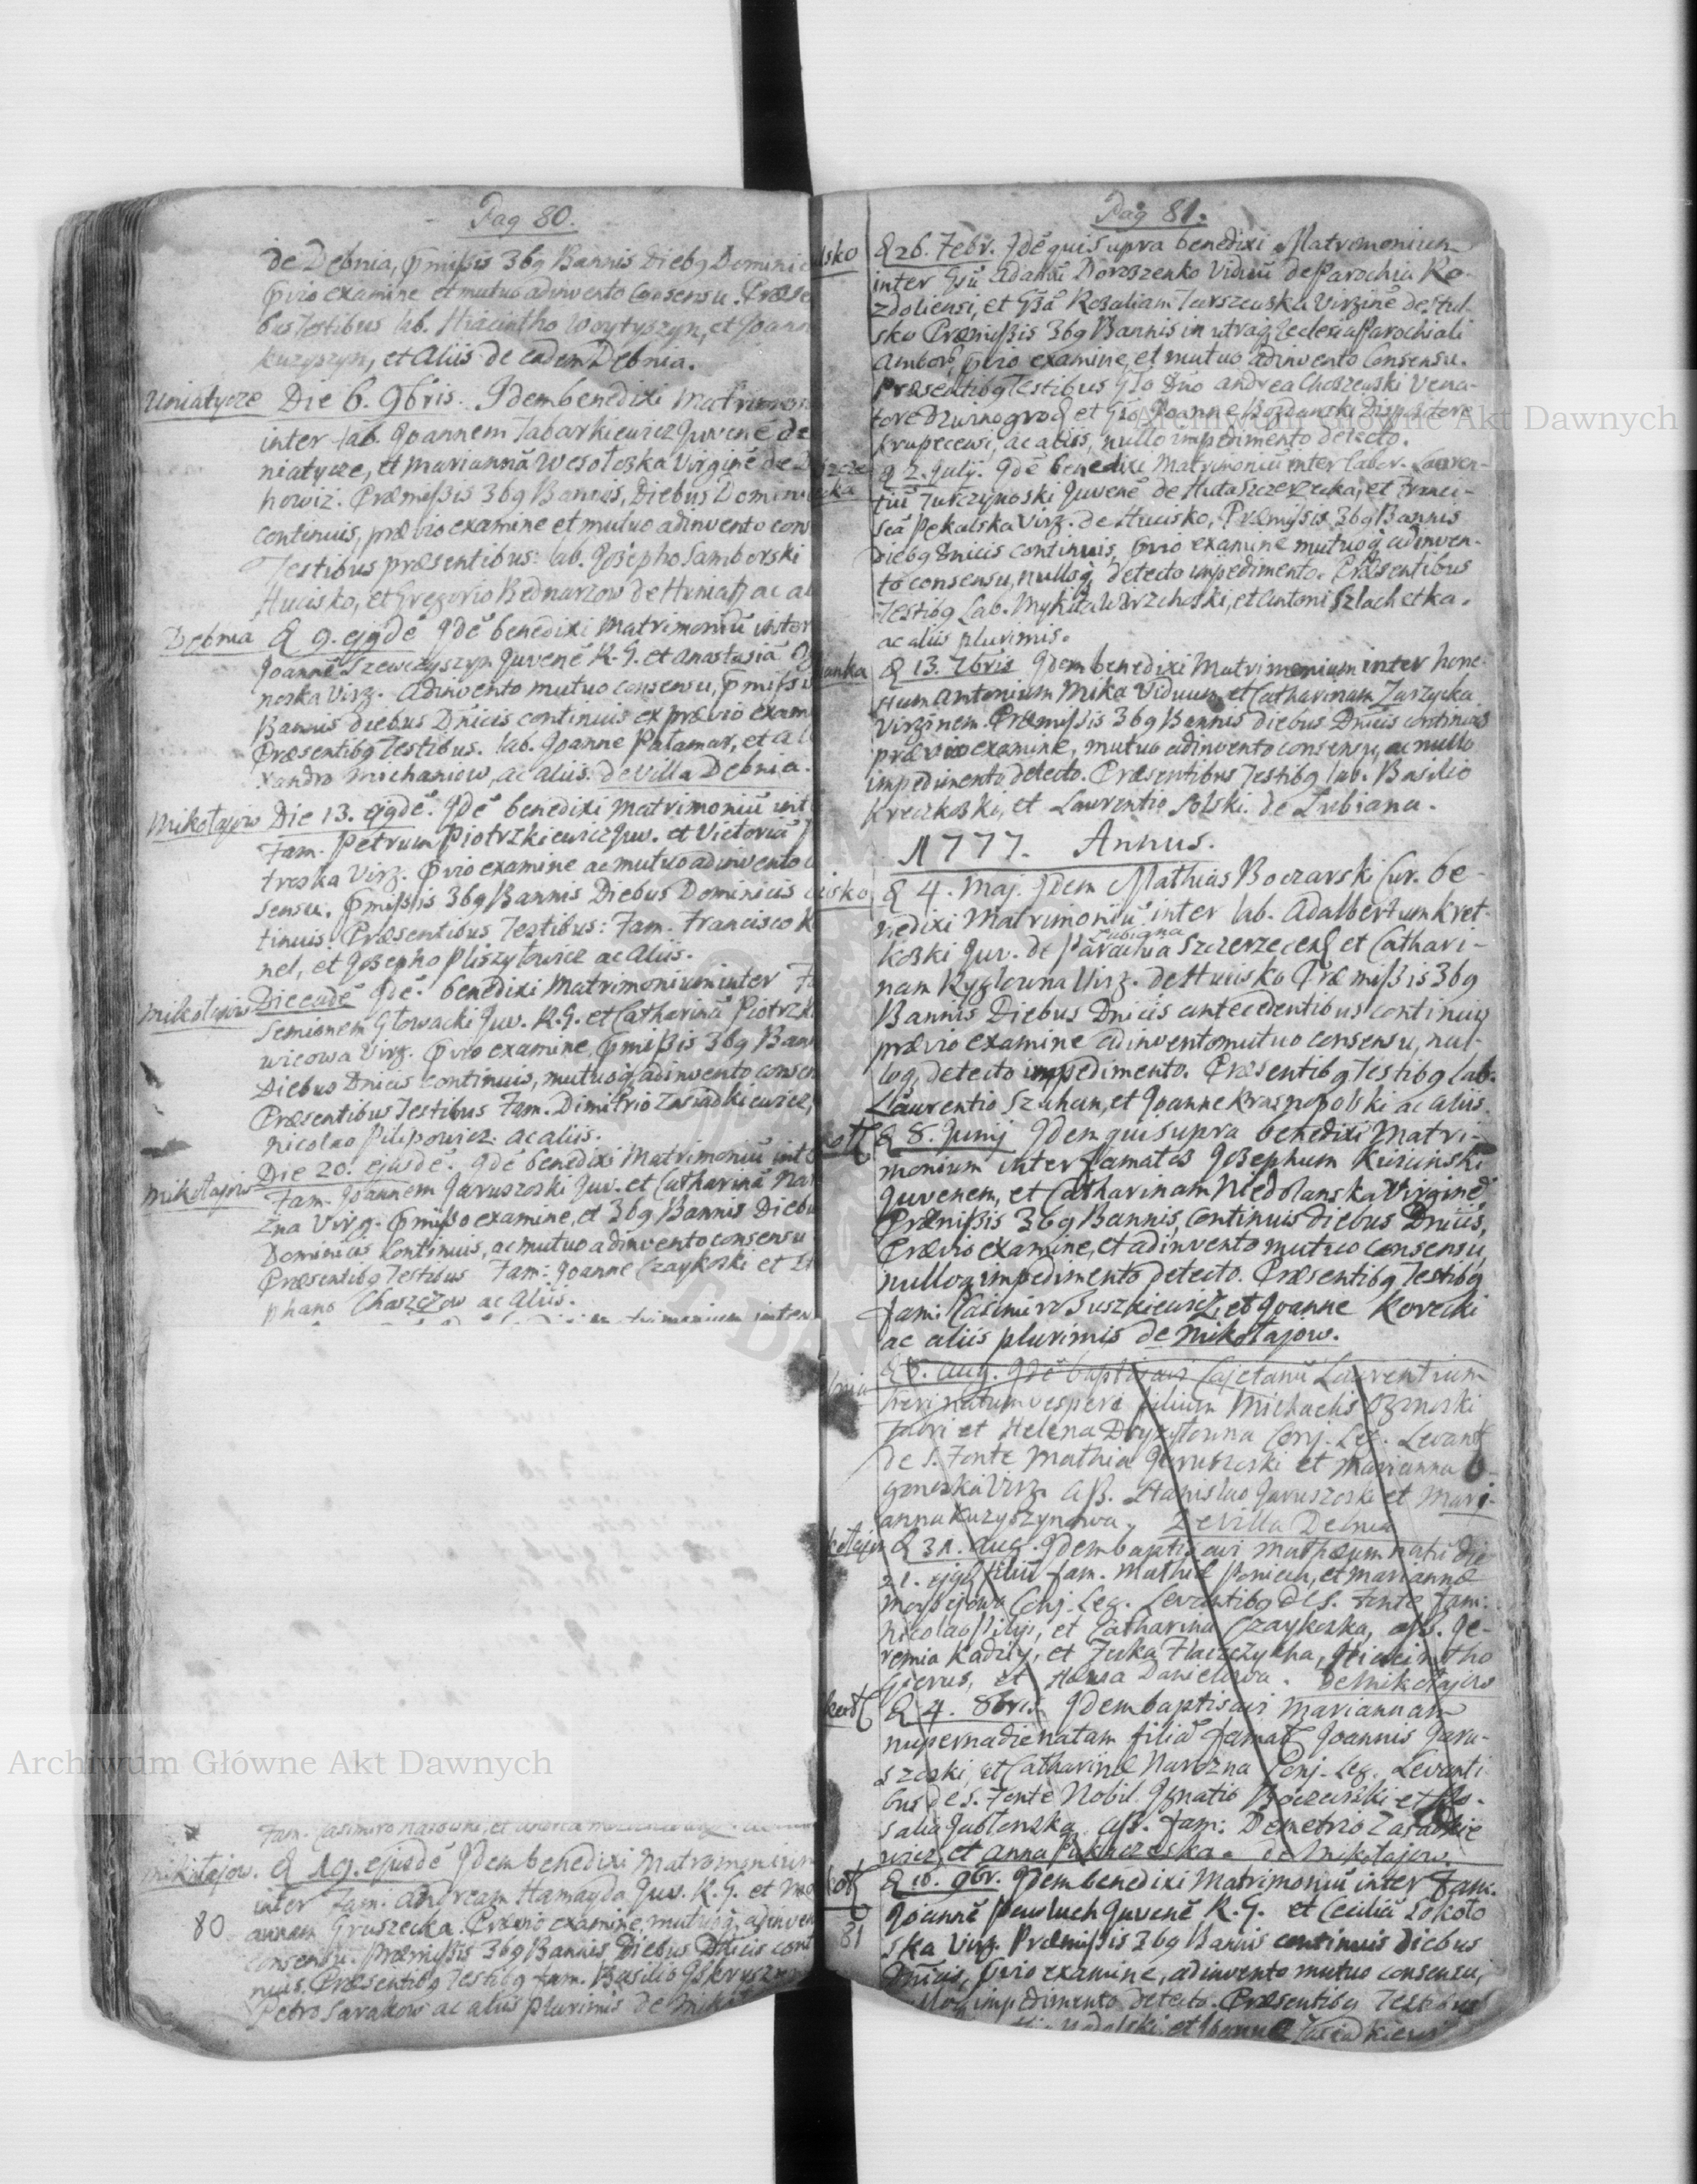 Pag 80.
de Debnia, p̄missis 3bq Bannis Diebq Dominic
p̄vio examine et mutuo adinvento Consensu. Præse
bus Testibus lab. Hiacintho Woytyszyn, et Joann
kuzyszyn, et Aliis de eadem Debnia.
Uniatycze Die 6. 9bris. Idem benedixi Matrimon
inter lab. Joannem Tabarkiewicz Juvenē de
niatycze, et Mariannā Wesołoska Virginē de
howiz. Præmissis 3bq Bannis, Diebus Domini
continuis, prævio examine et mutuo adinvento con
Testibus præsentibus: lab. Josepho Samborski
Hucisko, et Gregorio Bednarzow de Huniatz ac al
Debnia d 9. ejqdē Idē benedixi Matrimoniū inter
Joannē Szewczyszyn Juvenē R. G. et Anastasiā
noska Virg. Adinvento mutuo consensu, p̄missi
Bannis diebus Dnicis continuis ex prævio exam
Præsentibq Testibus. lab. Joanne Palamar, et Al
xandro Michaniow, ac aliis: de Villa Debnia.
Mikołajow Die 13. ejqdē. Idē benedixi Matrimoniū int
Fam. Petrum Piotrzkiewicz Juv. et Victoriā
treska Virg. p̄vio examine ac mutuo adinvento
sensu. p̄missis 3bq Bannis Diebus Dominicis
tinuis. Præsentibus Testibus: Fam. Francisco K
nel, et Josepho Pliszytowicz ac Aliis.
Mikołajow Die eadē Idē benedixi Matrimonium inter F
Semionem Głowacki Juv. R. G. et Catharinā Piotrzk
wicowa Virg. p̄vio examine, p̄missis 3bq Ban
Diebus Dnicis continuis, mutuoq, adinvento consen
Præsentibus Testibus Fam. Dimitrio Zasiadkiewicz,
Nicolao Pilipowicz. ac aliis.
Mikołajow Die 20. ejusdē. Idē benedixi Matrimoniū int
Fam. Joannem Jaruszoski Juv. et Catharinā Nar
zna Virg. p̄misso examine, et 3bq Bannis Diebu
Dominicis Continuis, ac mutuo adinvento consensu
Præsentibq Testibus Fam: Joanne Czaykoski et St
phano Chaszczow ac Aliis.
trimonium inter
Fam. Casimiro
Mikołajow. d 19. ejusdē Idem benedixi Matrimonium
inter Fam. Andream Hamayda Juv. R. G. et
80 annam Gruszecka. Prævio examine, mutuoq, adinven
consensu. Præmissis 3bq Bannis Diebus Dnicis cont
nuis. Præsentibq Testibq fam. Basilio
Petro Sarakow ac aliis plurimis de Mikoł
Pag 81.
isko d 26. Febr. Idē qui supra benedixi Matrimonium
inter Gsū Adamū Doroszenko Viduū de Parochia Ro-
zdoliensi, et Gsā Rosaliam Turszewska Virginē de Hul-
sko Præmissis 3bq Bannis in utraq, Ecclesia Parochiali
Amborū, p̄vio examine, et mutuo adinvento Consensu.
Præsentibq Testibus Gso Dno Andrea Choszewski Vena-
tore Dzwinogrod et Gso Joanne Bogdanski
krupecewi, ac aliis, nullo impedimento detecto.
d 2. Julij. Idē benedixi Matrimoniū inter labor. Lauren-
tiū Jurczynoski Juvenē de Huta Szczerzecka, et Franci-
scā Pękalska Virg. de Hucisko, Præmissis 3bq Bannis
Diebq Dnicis continuis, p̄vio examine mutuoq adinven-
to consensu, nulloq, detecto impedimento. Præsentibus
Testibq lab. Mykita Wirzchoski, et Antoni Szlachetka.
ac aliis plurimis.
ianka d 13. 7bris Idem benedixi Matrimonium inter hone-
stum Antonium Mika Viduum, et Catharinam Zarzycka
Virginem. Præmissis 3bq Bannis diebus Dnicis continuis
prævio examine, mutuo adinvento consensu, ac nullo
impedimento detecto. Præsentibus Testibq lab. Basilio
Kreczkosko, et Laurentio Solski. de Lubiana.
1777. Annus.
cisko d 4. Maj. Idem Mathias Boczarski Cur. be-
nedixi Matrimoniū inter lab. Adalbertum Kret-
Lubiana
koski Juv. de Parochia Szczerzecen et Cathari-
nam Ryglowna Virg. de Hucisko Præmissis 3bq
Bannis Diebus Dnicis antecedentibus continuis
prævio examine adinvento mutuo consensu, nul-
loq, detecto impedimento. Præsentibq Testibq lab.
Laurentio Szahan, et Joanne Krasnopolski ac aliis.
d 8. Junij Idem qui supra benedixi Matri-
monium inter Famatos Josephum Kuścinski
Juvenem, et Catharinam Niedolanska Virginē
Præmissis 3bq Bannis, Continuis diebus Dnicis,
Prævio examine, et adinvento mutuo consensu,
nulloq, impedimento detecto. Præsentibq, Testibq
fam: Casimiro Buszkiewicz, et Joanne Korecki
ac aliis plurimis de Mikołajow.
bnia d 8. Aug. Idē baptisavi Cajetanū Laurentium
heri natum vespere filium Michaelis Ogonoski
Fabri et Helena Dryzytowna Conj. Leg. Levant
de S. Fonte Mathia Jaruszoski et Marianna O-
gonoska Virg. ass. Stanislao Jaruszoski et Mari-
anna Kuzyszynowa, De Villa Debnia
kołajow d 31. Aug. Idem baptisavi Mathæum natū die
21. ejqd filiū fam. Mathiæ Poniech, et Mariannæ
Conj. Leg. Levantibq de S. Fonte fam:
Nicolao Pilip, et Catharina Czaykoska, ass. Je-
remia Kadziy, et Hiacintho
et Danielowa. de Mikołajow
d 4. 8bris Idem baptisavi Mariannam
nupernadie natam filiā Famat Joannis Jaru-
szoski, et Catharinæ Narozna Conj. Leg. Levanti-
bus de S. Fonte Nobil. Ignatio Boczarski et Ro-
salia Jabłonska. ass. fam: Demetrio Zasadkie
wicz, et Anna de Mikołajow.
d 16. 9br. Idem benedixi Matrimoniū inter Fam.
81 Joannē Pawluch Juvenē R. G. et Ceciliā Sokoło
ska Virg. Præmissis 3bq Bannis continuis Diebus
Dnicis, p̄vio examine, adinvento mutuo consensu,
nulloq impedimento detecto. Præsentibq Testibus
et Joanne Zasiadkiewi
Archiwum Główne Akt Dawnych
Archiwum Główne Akt Dawnych